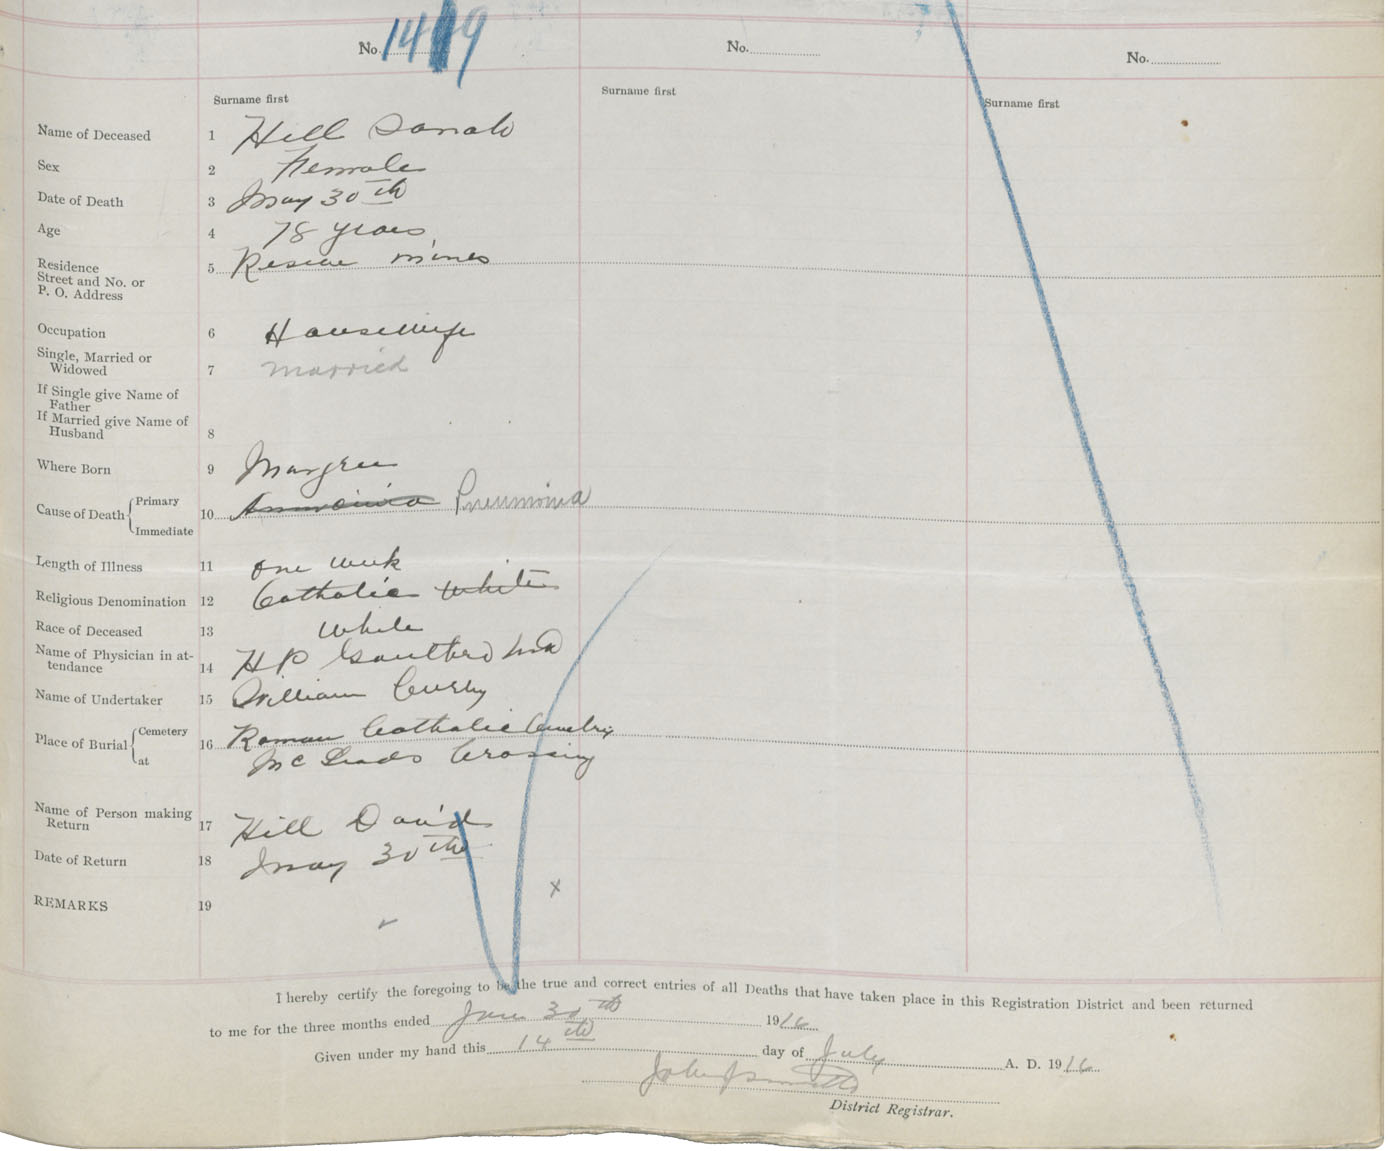 No. 1419
No.
No.
Surname first
Surname first
Surname first
Name of Deceased 1 Hill Sarah
Sex 2 Female
Date of Death 3 May 30th
Age 4 78 years
Residence
Street and No. or
P. O. Address 5 Reserve mines
Occupation 6 Housewife
Single, Married or
Widowed 7 married
If Single give Name of
Father
If Married give Name of
Husband 8
Where Born 9 Margree
Cause of Death Primary
Immediate 10 Pneumonia
Length of Illness 11 one week
Religious Denomination 12 Catholic white
Race of Deceased 13 White
Name of Physician in at-
tendance 14 H P
Name of Undertaker 15 William Curry
Place of Burial Cemetery
at 16 Roman Catholic Cemetry
Mc Leods Crossing
Name of Person making
Return 17 Hill David
Date of Return 18 May 30th
REMARKS 19
x
I hereby certify the foregoing to be the true and correct entries of all Deaths that have taken place in this Registration District and been returned
to me for the three months ended June 30th 1916
Given under my hand this 14th day of July A. D. 1916
John
District Registrar.